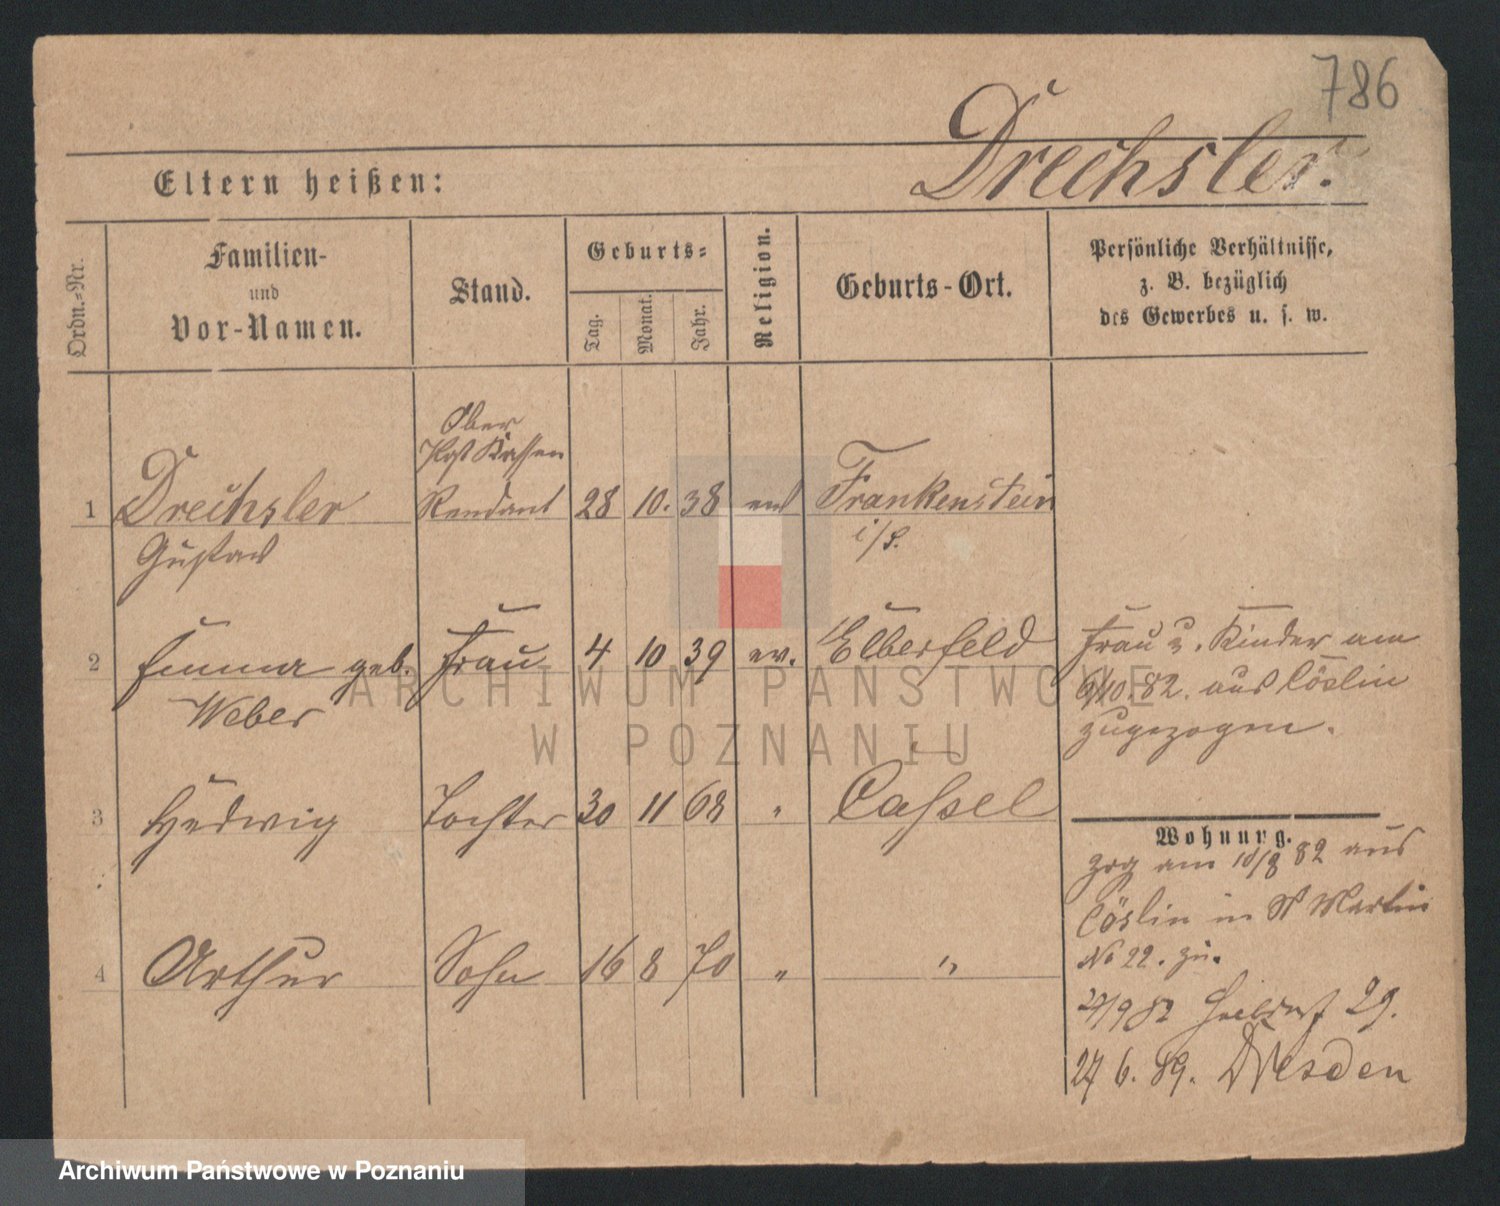 786
Drechsler.
Eltern heißen:
Ordn.=Nr.
Familien-
und
Vor-Namen.
Stand.
Geburts=
Tag.
Monat.
Jahr.
Religion.
Geburts-Ort.
Persönliche Verhältnisse,
z. B. bezüglich
des Gewerbes u. s. w.
Ober
Post Kassen
1 Drechsler Rendant 28 10. 38 ev Frankenstein
Gustav i/S.
2 Emma geb. Frau 4 10 39 ev. Elberfeld
Weber
Frau u. Kinder am
6/10. 82. aus Cöslin
zugezogen.
3 Hedwig Tochter 30 11 68 " Cassel
4 Arthur Sohn 16 8 70 " "
Wohnung.
zog am 18/8 82 aus
Cöslin in St Martin
No 22. zu.
29.
27 6. 89. Dresden
ARCHIWUM PAŃSTWOWE
W POZNANIU
Archiwum Państwowe w Poznaniu